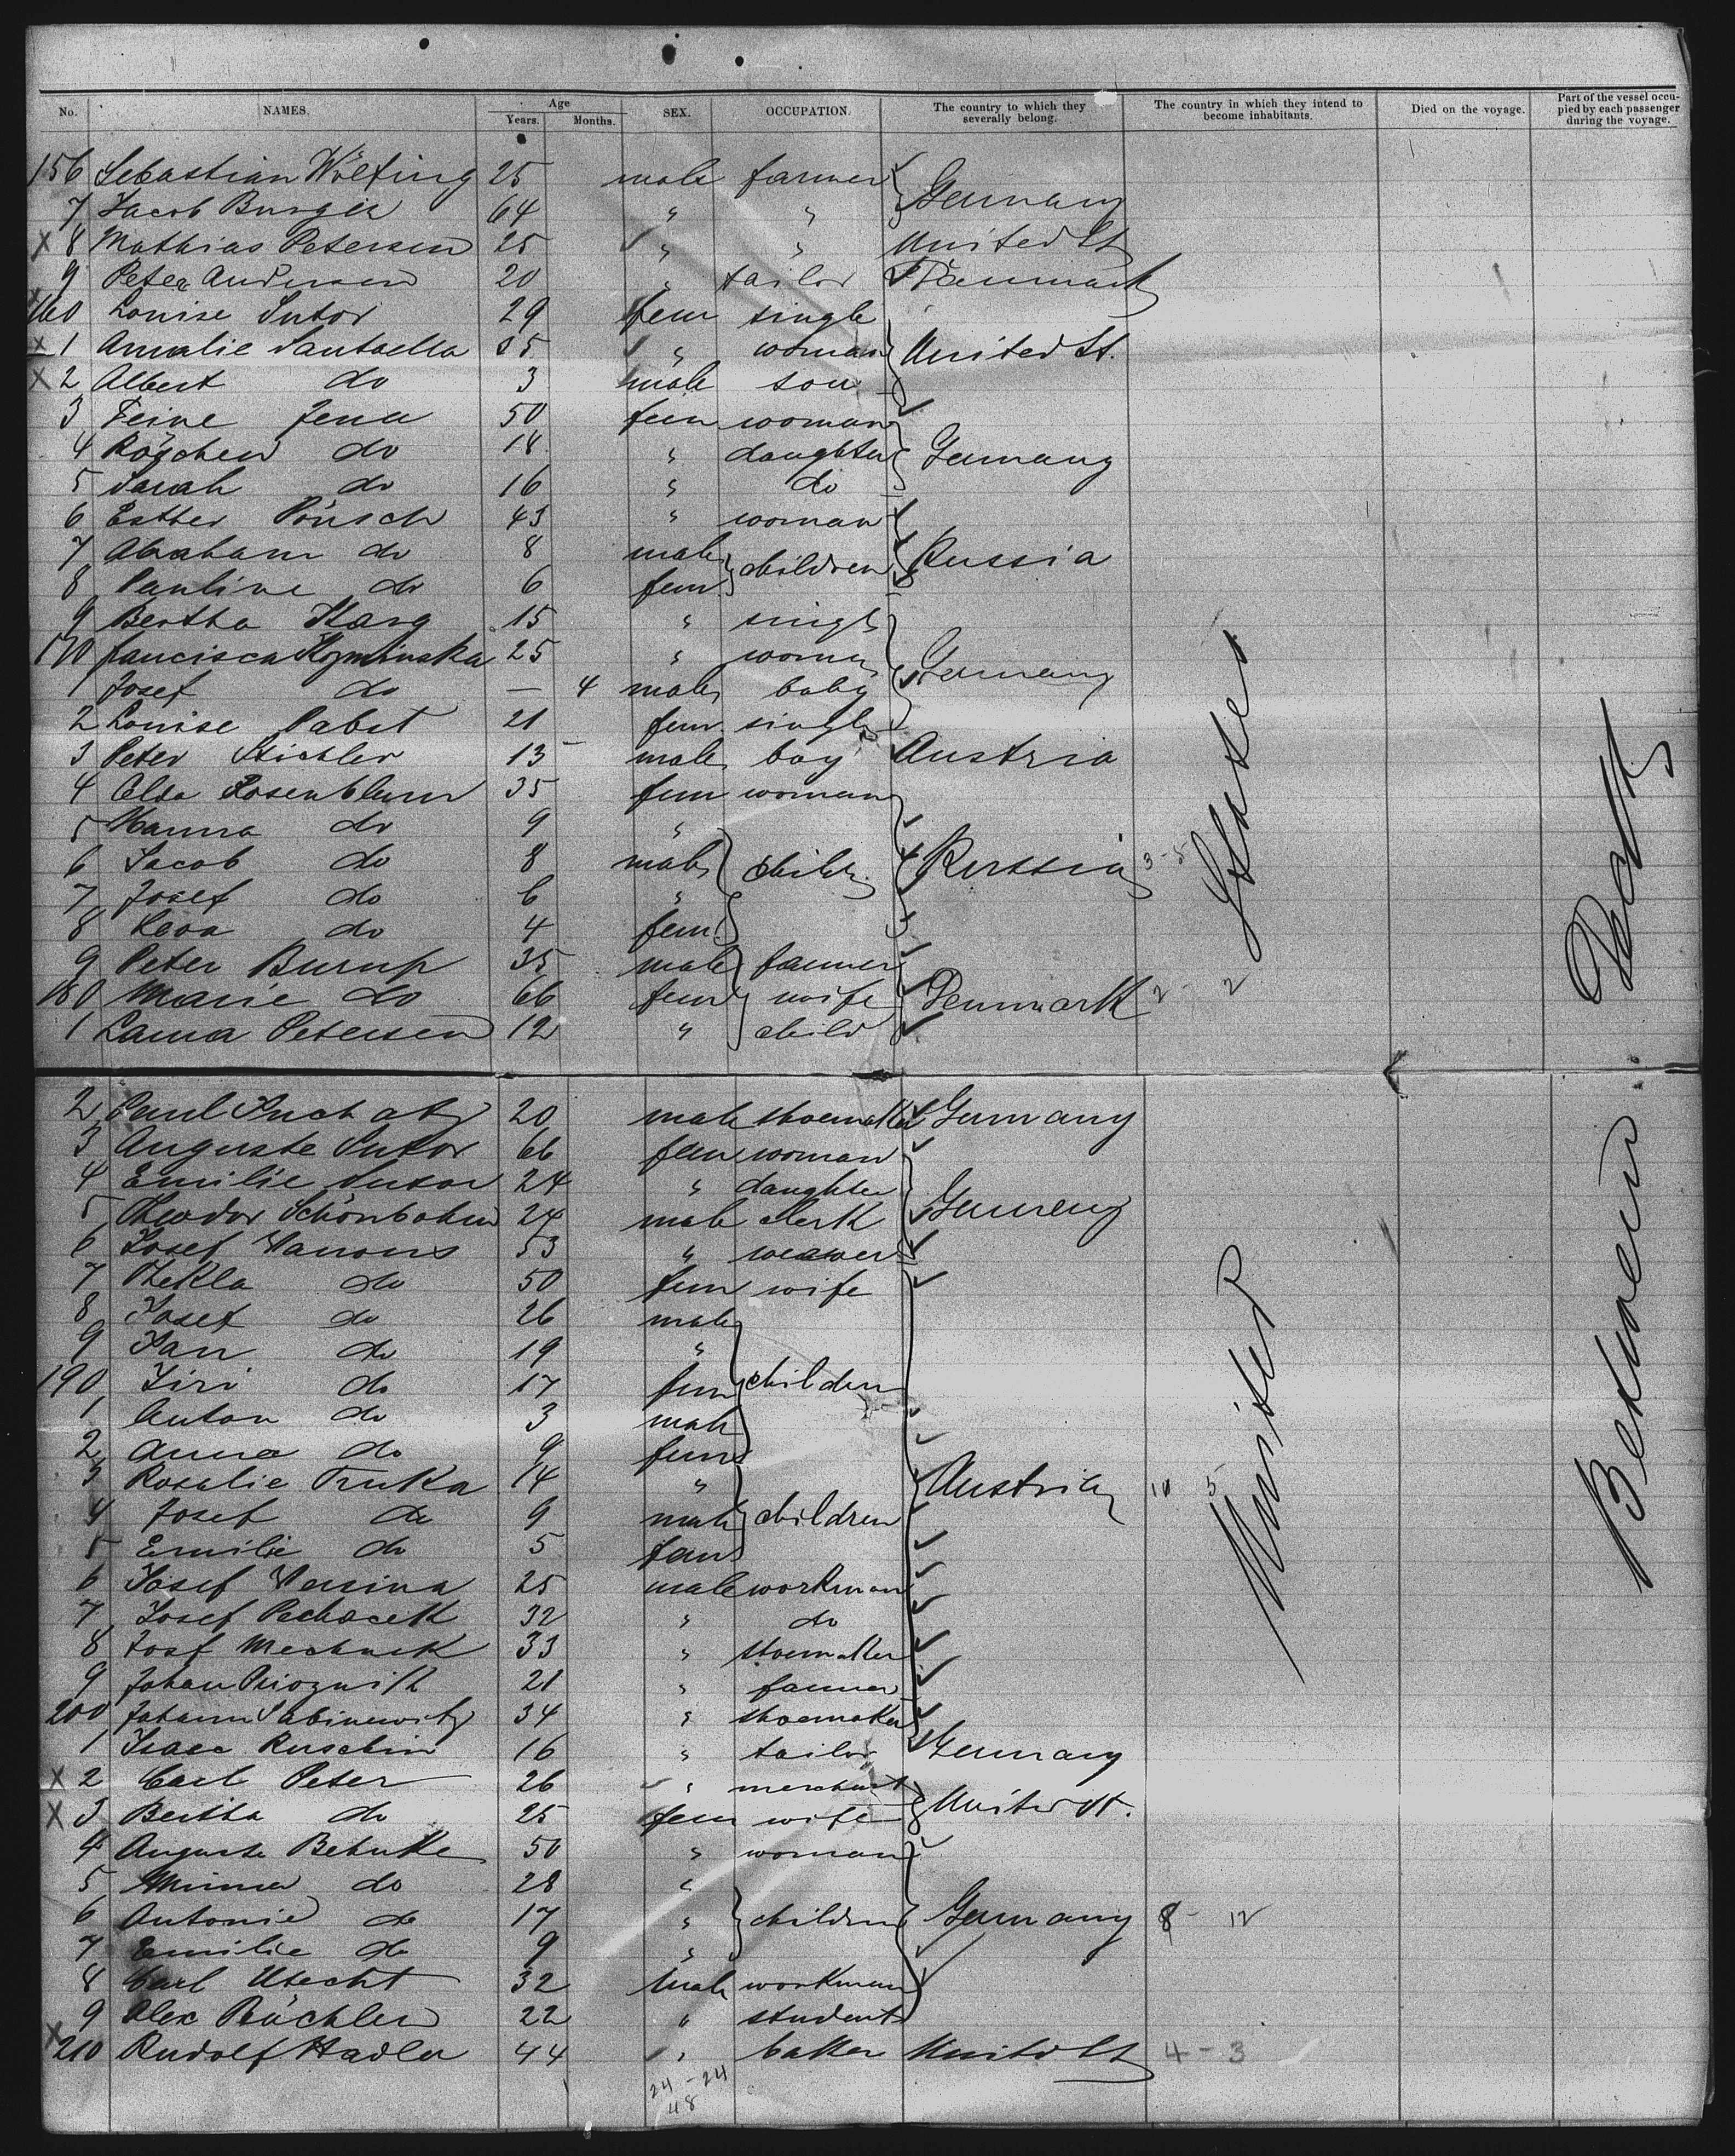 No. NAMES. Age Years. Months. SEX. OCCUPATION. The country to which they severally belong. The country in which they intend to become inhabitants. Died on the voyage. Part of the vessel occupied by each passenger during the voyage.
156 Sebastian Wölfing 25 male farmer
7 Jacob Burger 64 " " Germany
x 8 Mathias Petersen 25 " " United St
9 Peter Andersen 20 " tailor Danmark
x 160 Louise Sutor 29 fem single
x 1 Amalie Santaella 35 " woman United St.
x 2 Albert do 3 male son
3 Feine Jena 50 fem woman
4 Röschen do 18 " daughter Germany
5 Sarah do 16 " do
6 Esther Pönsch 43 " woman
7 Abraham do 8 male children Russia
8 Pauline do 6 fem
9 Bertha Karg 15 " single
170 Francisca 25 " woman Germany
1 Josef do — 4 male baby
2 Louise Pabst 21 fem single
3 Peter Stichler 13 male boy Austria
4 Elda Rosenblum 35 fem woman
5 Hanna do 9 "
6 Jacob do 8 male childr. Russia 3-5
7 Josef do 6 "
8 do 4 fem
9 Peter Burup 35 male farmer
180 Marie do 66 fem wife Denmark 2 - 2
1 Laura Petersen 12 " child
2 Paul 20 male shoemaker Germany
3 Auguste Sutor 66 fem woman
4 Emilie Sutor 24 " daughter
5 Theodor Schönbohm 24 male clerk Germany
6 Josef 53 " weawer
7 Thekla do 50 fem wife
8 Josef do 26 male
9 Jan do 19 "
190 Jiri do 17 fem children
1 Anton do 3 male
2 Anna do 9 fem
3 Rosalie Truka 14 " Austria 10 5
4 Josef do 9 male children
5 Emilie do 5 fem
6 Josef Versina 25 male workman
7 Josef Pechacek 32 " do
8 Josf 33 " shoemaker
9 Johan 21 " farmer
200 Johann Sabinewitz 34 " shoemaker
1 Isaac Ruschin 16 " tailor Germany
x 2 Carl Peter 26 " merchant
x 3 Bertha do 25 fem wife United St.
4 Auguste Behnke 50 " woman
5 Minna do 28 "
6 Antonie do 17 " children Germany 8 - 12
7 Emilie do 9 "
8 Carl Utecht 32 male workman
9 Alex Büchler 22 " student
x 210 Rudolf Hadler 44 " baker United St 4 - 3
24 - 24
48
United States
Between Decks